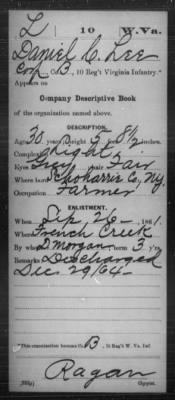 L | 10 | W.Va.
Daniel C. Lee
Corp., Co. B, 10 Reg't Virginia Infantry.*
Appears on
Company Descriptive Book
of the organization named above.
DESCRIPTION.
Age 30 years; height 5 feet 8½ inches.
Complexion Light
Eyes ; hair Fair
Where born Schoharrie Co, Ny.
Occupation Farmer
ENLISTMENT.
When Sep. 26, 1861.
Where French Creek
By whom D Morgan; term 3 y'rs.
Remarks Discharged
Dec 29/64-
*This organization became Co. B, 10 Reg't W. Va. Inf.
Ragan
Copyist.